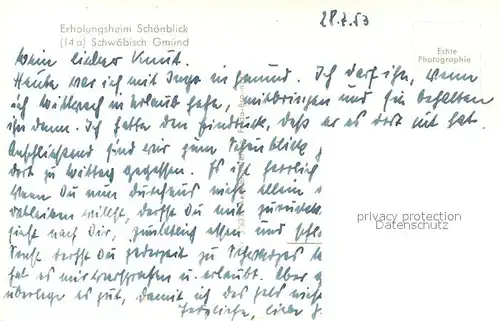 28.7.53
Erholungsheim Schönblick
(14a) Schwäbisch Gmünd
Echte
Photographie
Mein lieber Knut.
Heute war ich mit Inge in Gmünd. Ich darf ihn, wenn
ich Mittwoch in Urlaub fahre, mitbringen und Sie behalten
ihn dann. Ich hatte den Eindruck, daß er es dort gut hat.
Anschließend sind wir zum Schönblick
dort zu Mittag gegessen. Es ist herrlich
Wenn Du nun durchaus nicht allein
dableiben willst, darfst Du mit zurück
nach Dir, essen und
Sonst darfst Du jederzeit zu
hat es mir versprochen u. erlaubt. Aber
überlege es gut, damit ich das Geld nicht
Herzliche, liebe
privacy protection
Datenschutz